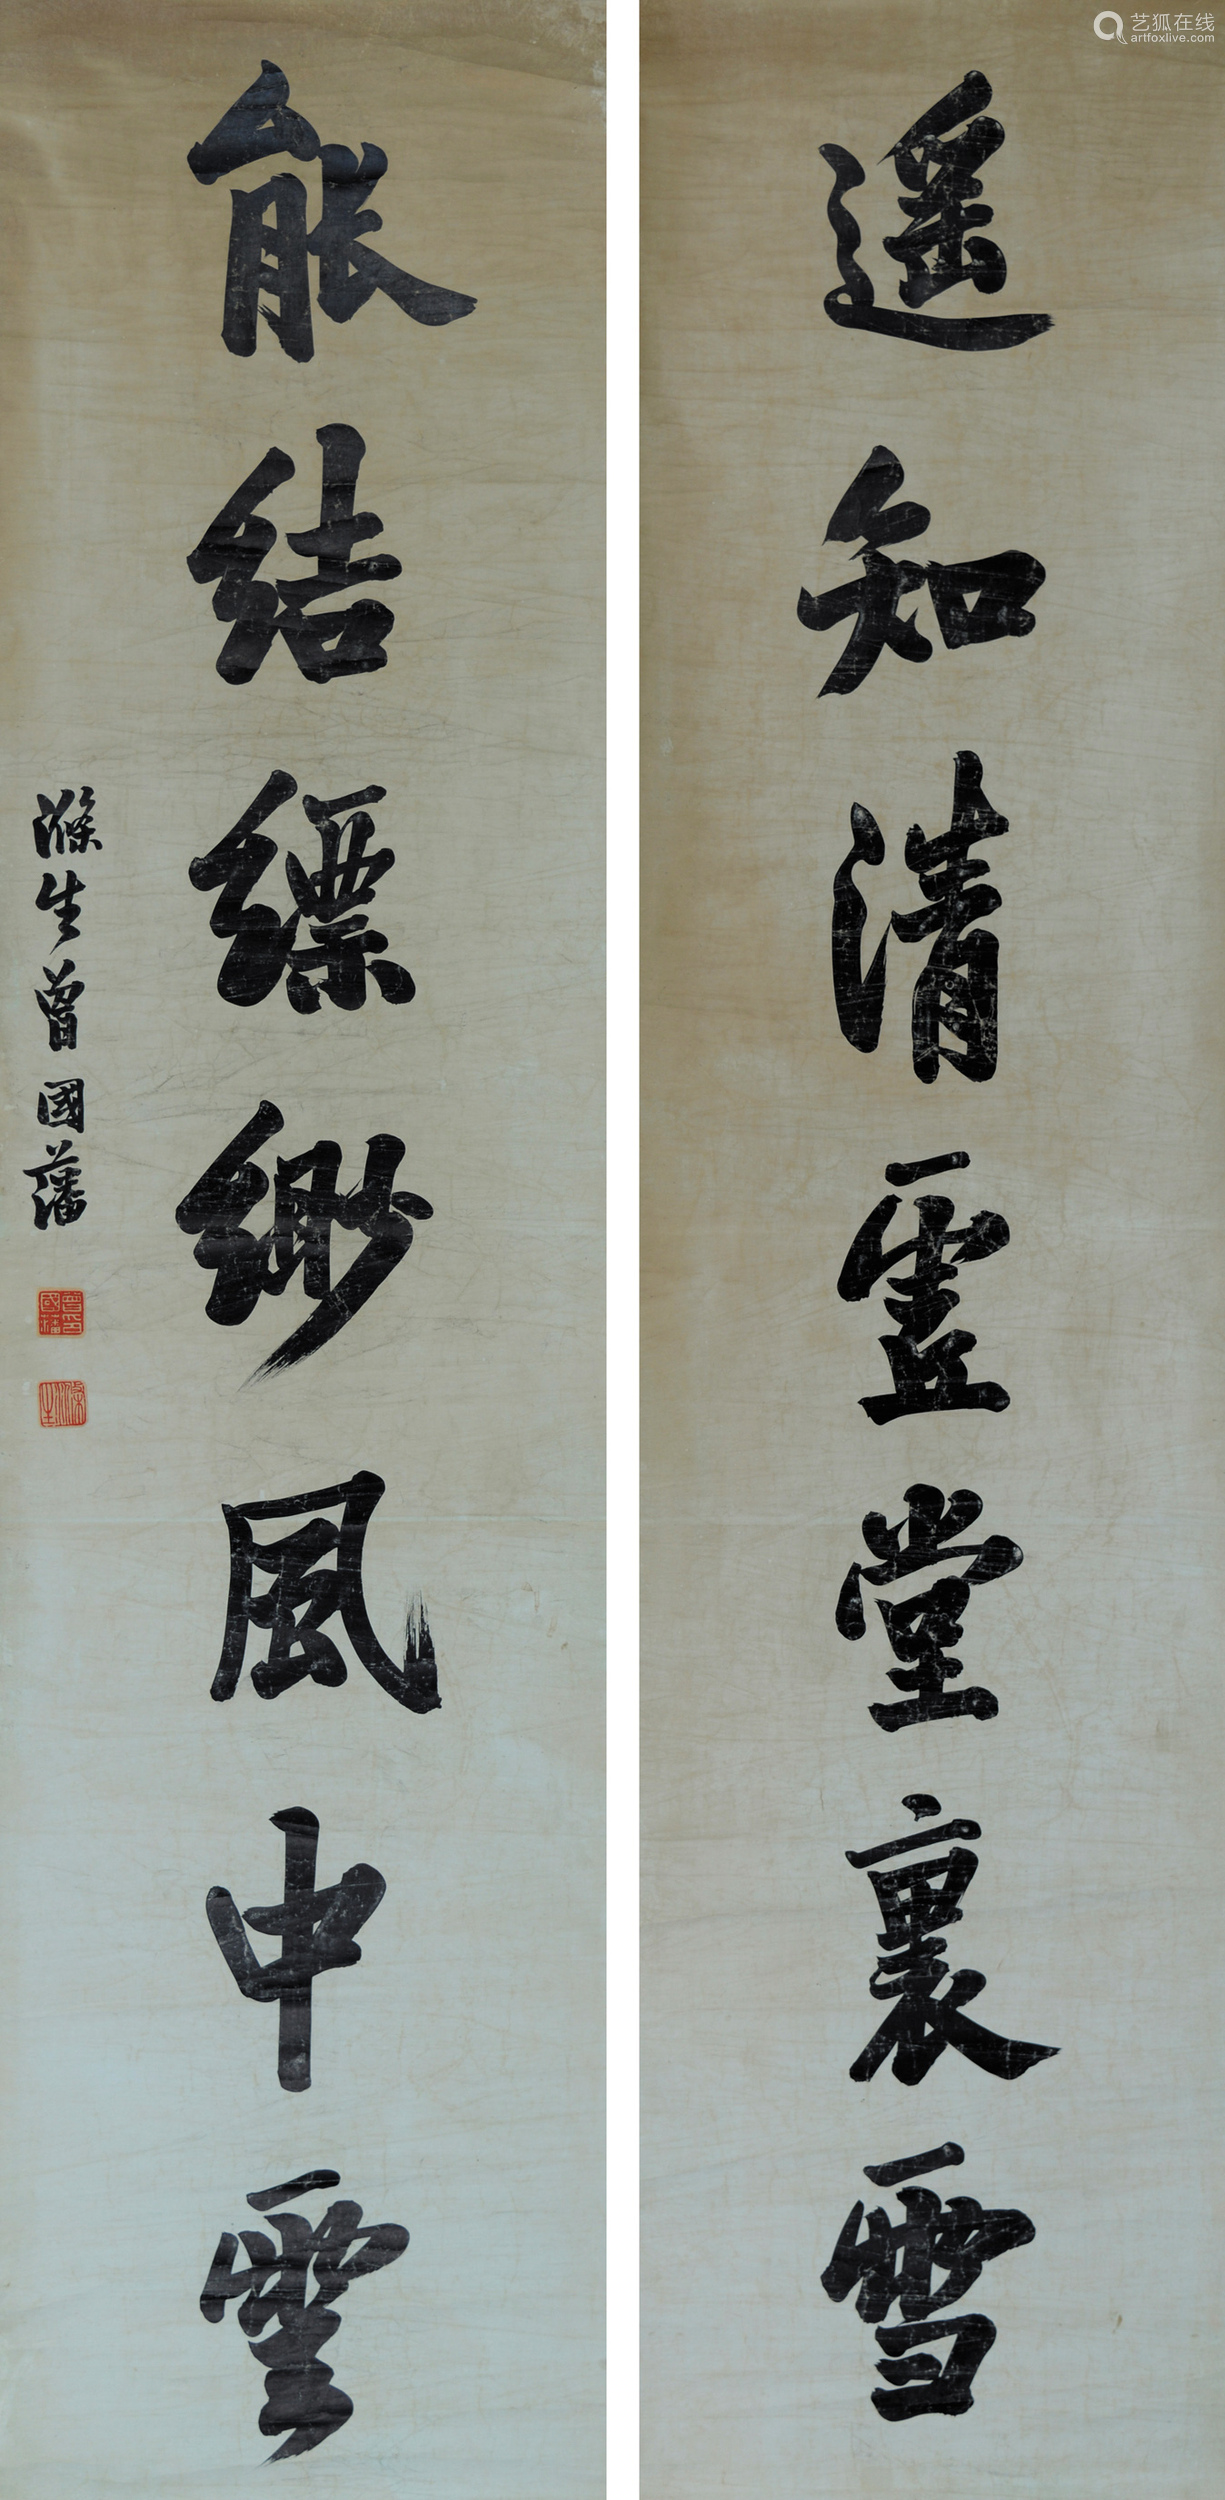 遥知清虚堂裏雪
能結縹緲風中雲
滌生曾國藩
曾國藩印
滌生
艺狐在线
artfoxlive.com